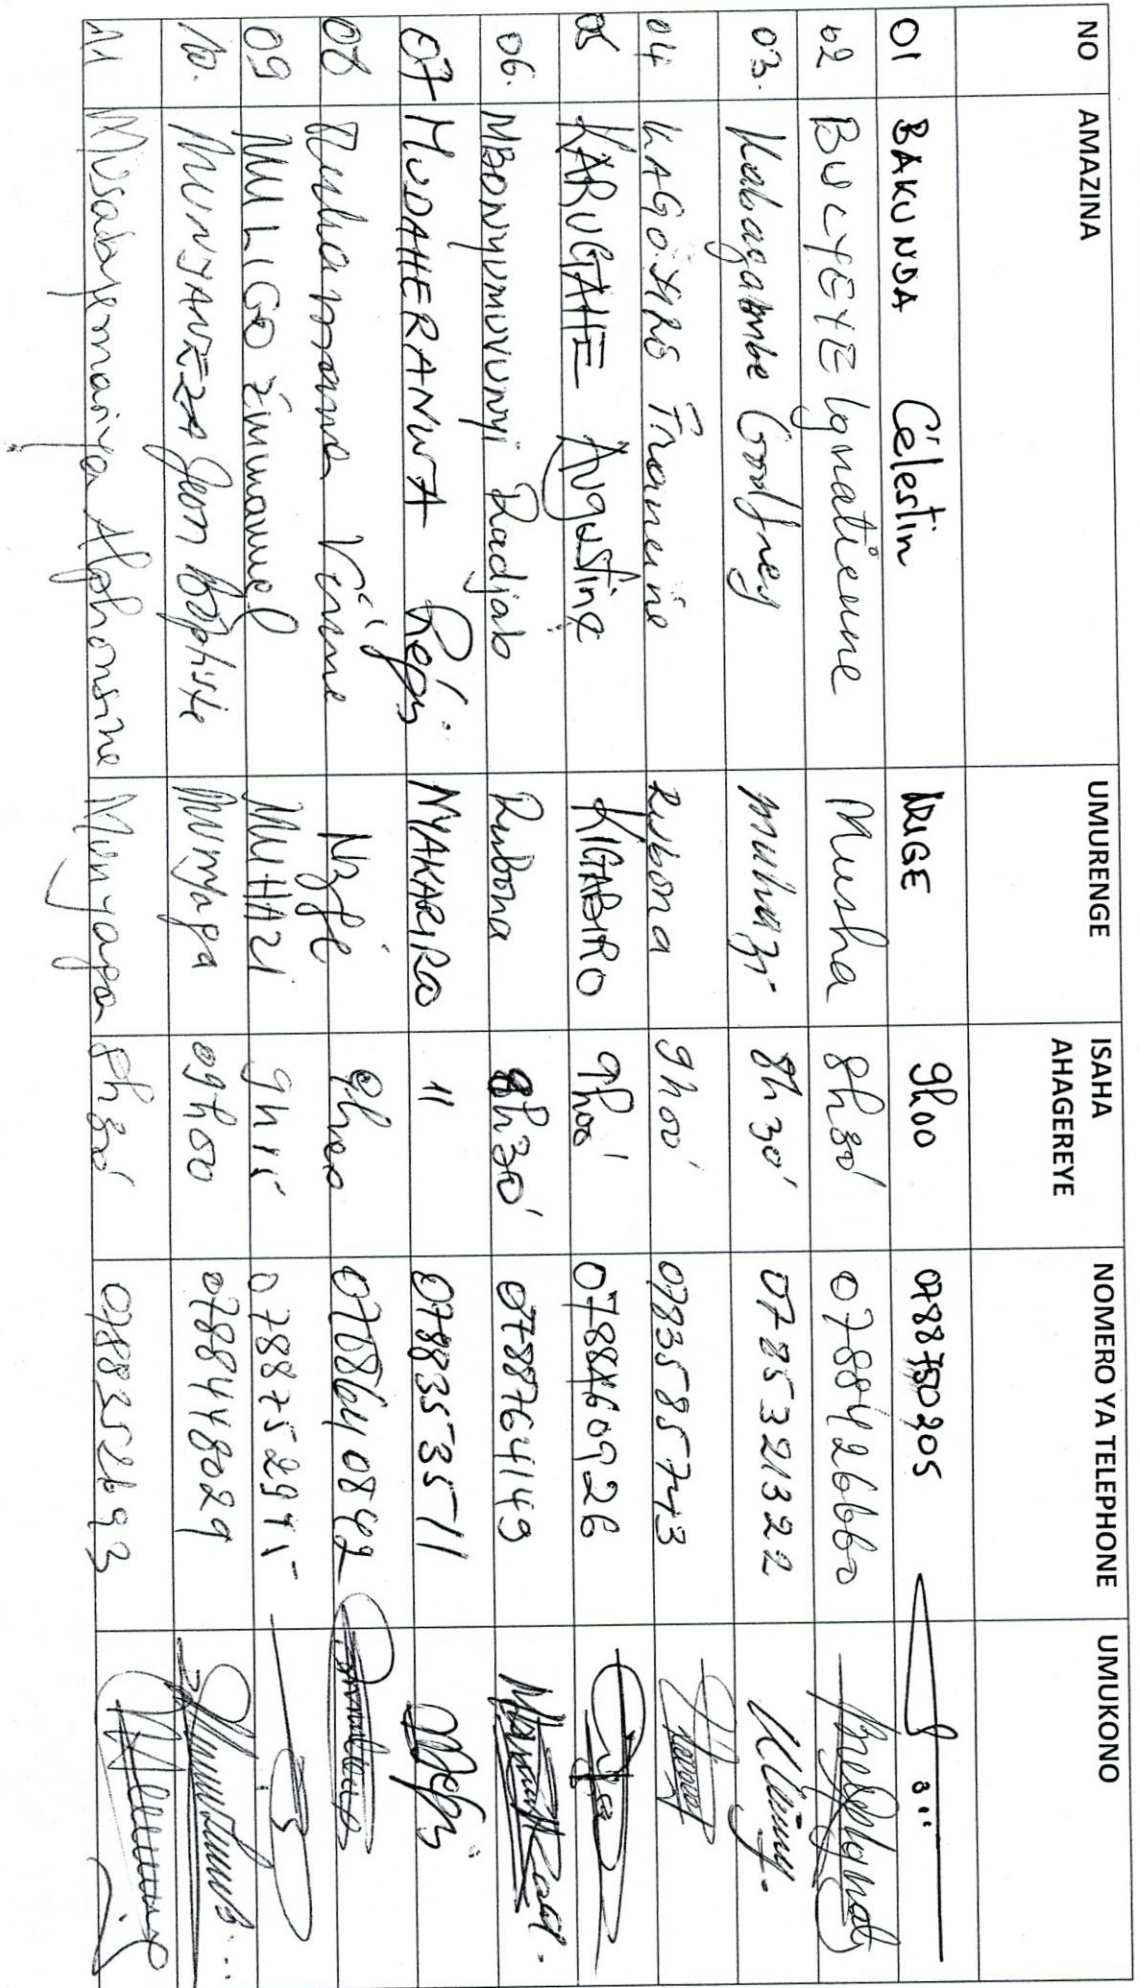 NO AMAZINA UMURENGE ISAHA AHAGEREYE NOMERO YA TELEPHONE UMUKONO
01 BAKUNDA Célestin KARIGE 9h00 0788750205
02 BUCYEYE Ignatienne Musha 8h30' 0788426660
03. Kabagambe Godfrey Muhazi 8h30' 0785321322
04 KAGOYIRE Francine Rubona 9h00' 0783585743
05 KARUGAHE Augustine KIGABIRO 9h00' 0788460926
06. MBONYUMUVUNYI Radjab Rubona 8h30' 0788764149
07 MUDAHERANWA Régis NYAKARIRO 11 0788353511
08 Nzige 0708640842
09 MULIGO Emmanuel MUHAZI 9h15' 0788752915
10. MUNYANEZA Jean Baptiste Munyaga 09h00 0788448029
11 Musabyemariya Alphonsine Munyaga 8h30' 0788352693